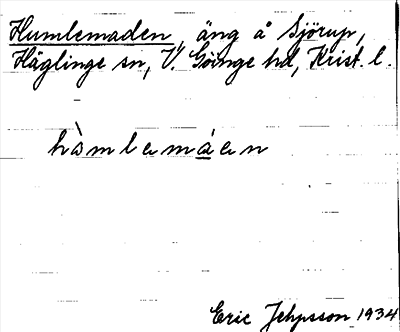 Humlemaden, äng å Sjörup,
Häglinge sn, V. Göinge hd, Krist. l.
hòmlemáen
Eric Jepsson 1934